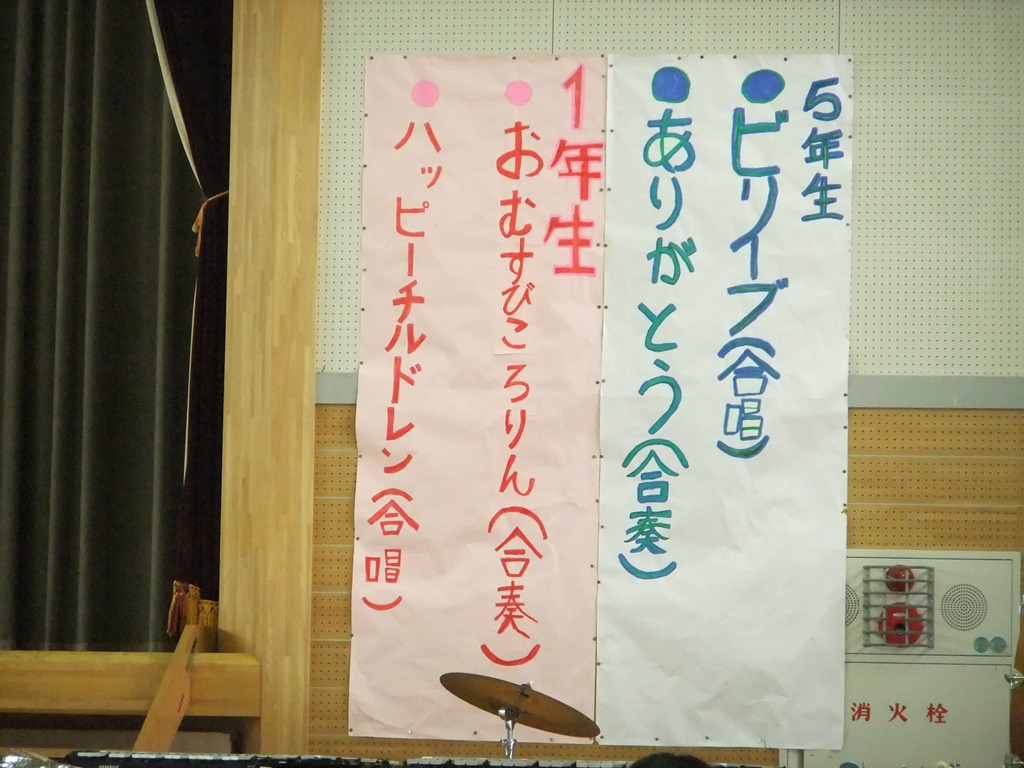 5年生
●ビリイブ(合唱)
●ありがとう(合奏)
1年生
●おむすびころりん(合奏)
●ハッピーチルドレン(合唱)
消火栓